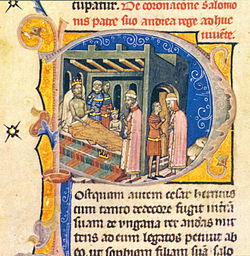 cupatur. De coronacōne Salomo
nis patre suo andrea rege adhuc
viuēte.
Postquam autem cesar henricus
cum tanto dedecore fugit in trā
suam de vngaria rex andās mit
tens ad eum legatos petiuit ab e
o. ut sophiam filiam suā salo